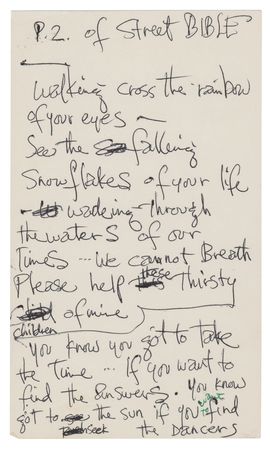 P.2. of Street BIBLE
Walking cross the rainbow
of your eyes —
See the falling
Snowflakes of your life
wadeing through
the waters of our
Times ... We cannot Breath
Please help these Thirsty
of mine
children
You know you got to Take
the Time ... If you want to
find the answers. You know
got to the sun if you want to find
seek the Dancers